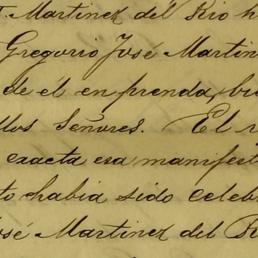 . Martinez del Rio h
Gregorio José Martin
de el en prenda, bu
llos Señores. El r
exacta esa manifest
to habia sido celeb
osé Martinez del R